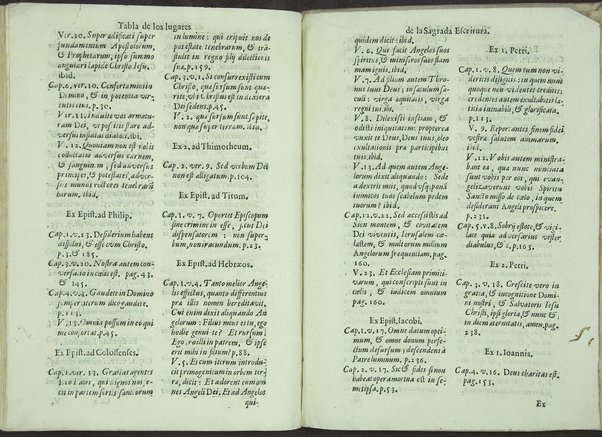 Tabla de los lugares
Ver. 20. Superædificati super
fundamentum Apostolorum,
& Prophetarum, ipso summo
angulari lapide Christo Iesu.
ibid.
Cap. 6. ver. 10. Confortamini in
Domino, & in potentia vir-
tutis eius. p. 30.
Ver. 11. Induite vos armatu-
ram Dei, vt possitis stare ad-
versus insidias diaboli. ibi.
V. 12. Quoniam non est nobis
colluctatio adversus carnem,
& sanguinem; sed adversus
principes, & potestates, adver-
sus mundi rectores tenebrarũ
harum, ibid.
Ex Epist. ad Philip.
Cap. 1. v. 23. Desiderium habens
dissolui, & esse cum Christo.
p. 3. & 185.
Cap. 3. v. 20. Nostra autem con-
versatio in cœlis est. pag. 43.
& 145.
Cap. 4. v. 4. Gaudete in Domino
semper iterum dico gaudete.
p. 113.
V. 13. Omnia possum in eo qui
me confortat. p. 45.
Ex Epist. ad Colossenses.
Cap. 1. ver. 13. Gratias agentes
Deo Patri, qui dignos nos fe-
cit in partem sortis sanctorum
in lumine: qui eripuit nos de
potestate tenebrarum, & trã-
stulit in regno filij dilectionis
suæ. p. 159.
Cap. 3. v. 1. Si consurrexistis cum
Christo, quæ sursum sunt quæ-
rite, vbi Christus est in dextera
Dei sedens. p. 45.
V. 2. quæ sursum sunt sapite,
non quæ super terram. ibid.
Ex 2. ad Thimotheum.
Cap. 2. ver. 9. Sed verbum Dei
non est alligatum. p. 104.
Ex Epist. ad Titum.
Cap. 1. v. 7. Oportet Episcopum
sine crimine esse, sicut Dei
dispensatorem: non super-
bum, non iracundum. p. 23.
Ex Epist. ad Hebræos.
Cap. 1. v. 4. Tanto melior Ange-
lis effectus, quanto differentius
præ illis nomen hereditavit.
Cui enim dixit aliquando An-
gelorum: Filius meus es tu, ego
hodie genui te? Et rursum:
Ego ero illi in patrem, & ipse
erit mihi in filium? p. 88.
V. 5. Et cum iterum introdu-
cit primogenitum in orbem ter-
ræ, dicit: Et adorent eum om-
nes Angeli Dei. Et ad Angelos
qui-
de la Sagrada Escritura.
quidem dicit: ibid.
V. 6. Qui facit Angelos suos
spiritus, & ministros suos flam-
mam ignis, ibid.
V. 7. Ad filium autem Thro-
nus tuus Deus; in sæculum sæ-
culi: virga æquitatis, virga
regni tui. ibi.
V. 8. Dilexisti iustitiam, &
odisti iniquitatem: propterea
vnxit te Deus, Deus tuus, oleo
exultationis præ participibus
tuis. ibid.
V. 13. Ad quem autem Ange-
lorum dixit aliquando: Sede
a dextris meis, quousque ponã
inimicos tuos scabelum pedum
tuorum? ibid.
Cap. 12. v. 22. Sed accessistis ad
Sion montem, & civitatem
Dei viventis, Ierusalem cæ-
lestem, & multorum millium
Angelorum frequentiam, pag.
160.
V. 23. Et Ecclesiam primiti-
varum, qui conscripti sunt in
cœlis, & iudicem omnium
pag. 160.
Ex Epist. Iacobi.
Cap. 1. v. 17. Omne datum opti-
mum, & omne donum perfe-
ctum desursum est descendens à
Patre luminum. p. 236.
Cap. 2. v. 17. Sic & fides si non
habeat opera mortua est in se-
metipsa. p. 53.
Ex 1. Petri.
Cap. 1. v. 8. Quem cum non vi-
deritis diligitis: in quem nunc
quoque non videntes creditis:
credentes autem exultabitis læ-
titia inenarrabili, & glorificata.
p. 123.
V. 9. Reportantes finem fidei
vestræ salutem animarum.
ind.
V. 12. Vobis autem ministra-
bant ea, quæ nunc nuntiata
sunt vobis per eos, qui evan-
gelizaverunt vobis Spiritu
Sancto misso de cœlo, in quem
desiderant Angeli prospicere.
p. 231.
Cap. 5. v. 8. Sobrij estote, & vigi-
late quia adversarius vester
diabulus, &c. p. 163.
Ex 2. Petri.
Cap. 3. v. 18. Crescite vero in
gratia, & in cognitione Domi-
ni nostri, & Salvatoris Iesu
Christi, ipsi gloria, & nunc &
in diem æternitatis, amen. pag.
238.
Ex 1. Ioannis.
Cap. 4. v. 16. Deus charitas est.
pag. 153.
Ex